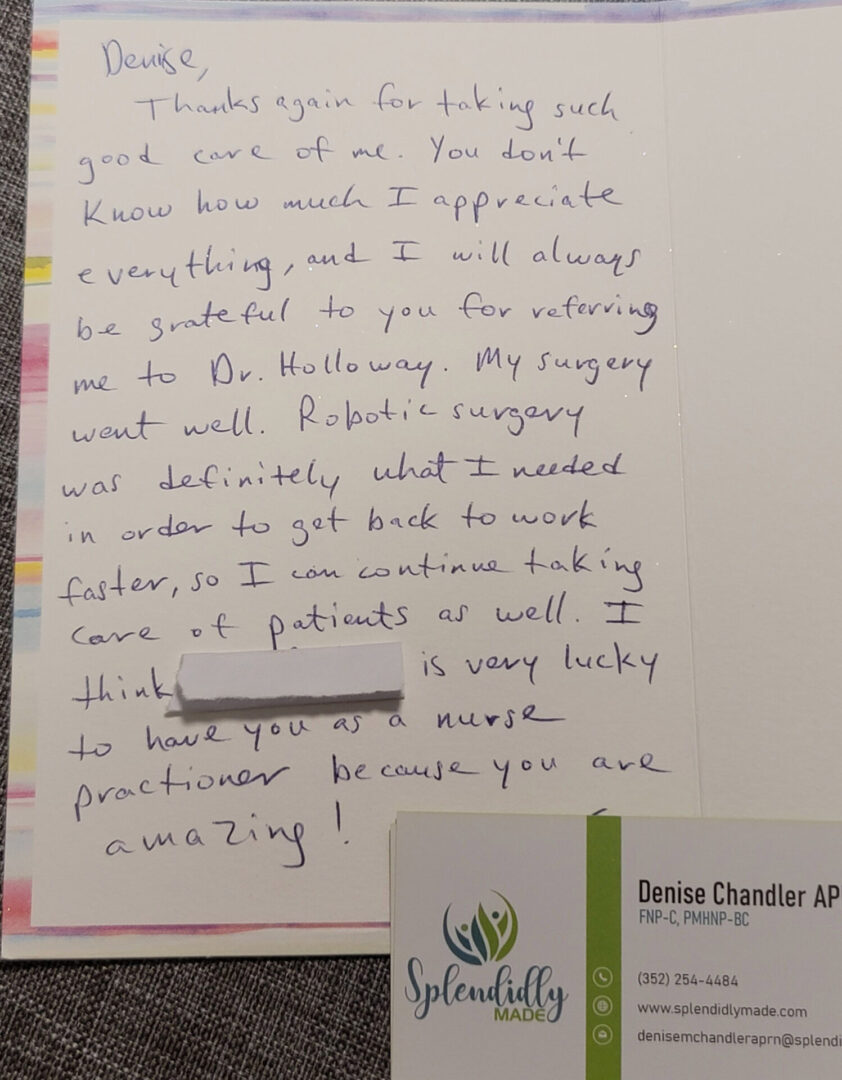 Denise,
Thanks again for taking such
good care of me. You don't
know how much I appreciate
everything, and I will always
be grateful to you for referring
me to Dr. Holloway. My surgery
went well. Robotic surgery
was definitely what I needed
in order to get back to work
faster, so I can continue taking
care of patients as well. I
think is very lucky
to have you as a nurse
practioner because you are
amazing!
Splendidly
MADE
Denise Chandler AP
FNP-C, PMHNP-BC
(352) 254-4484
www.splendidlymade.com
denisemchandleraprn@splendi